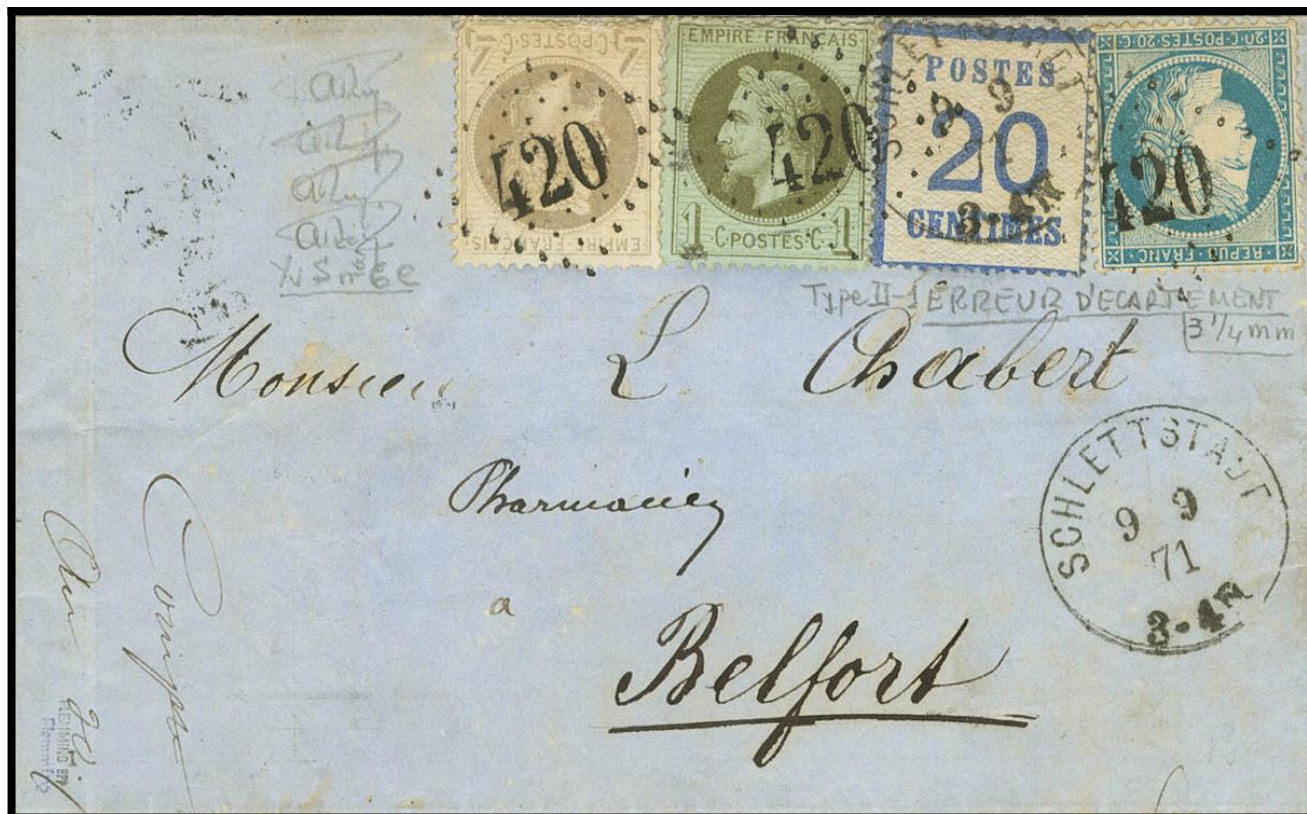 4 C·POSTES·C· 4
420
EMPIRE FRANÇAIS
EMPIRE·FRANÇAIS
420
1 C·POSTES·C· 1
POSTES
20
CENTIMES
9 9
3-4
20·C·POSTES·20·C·
420
REPUB·FRANC·
Type II-1 ERREUR D'ECARTEMENT
3 1/4 mm
Monsieur L Chabert
Pharmacien
a
Belfort
SCHLETTSTADT
9 9
71
3-4N